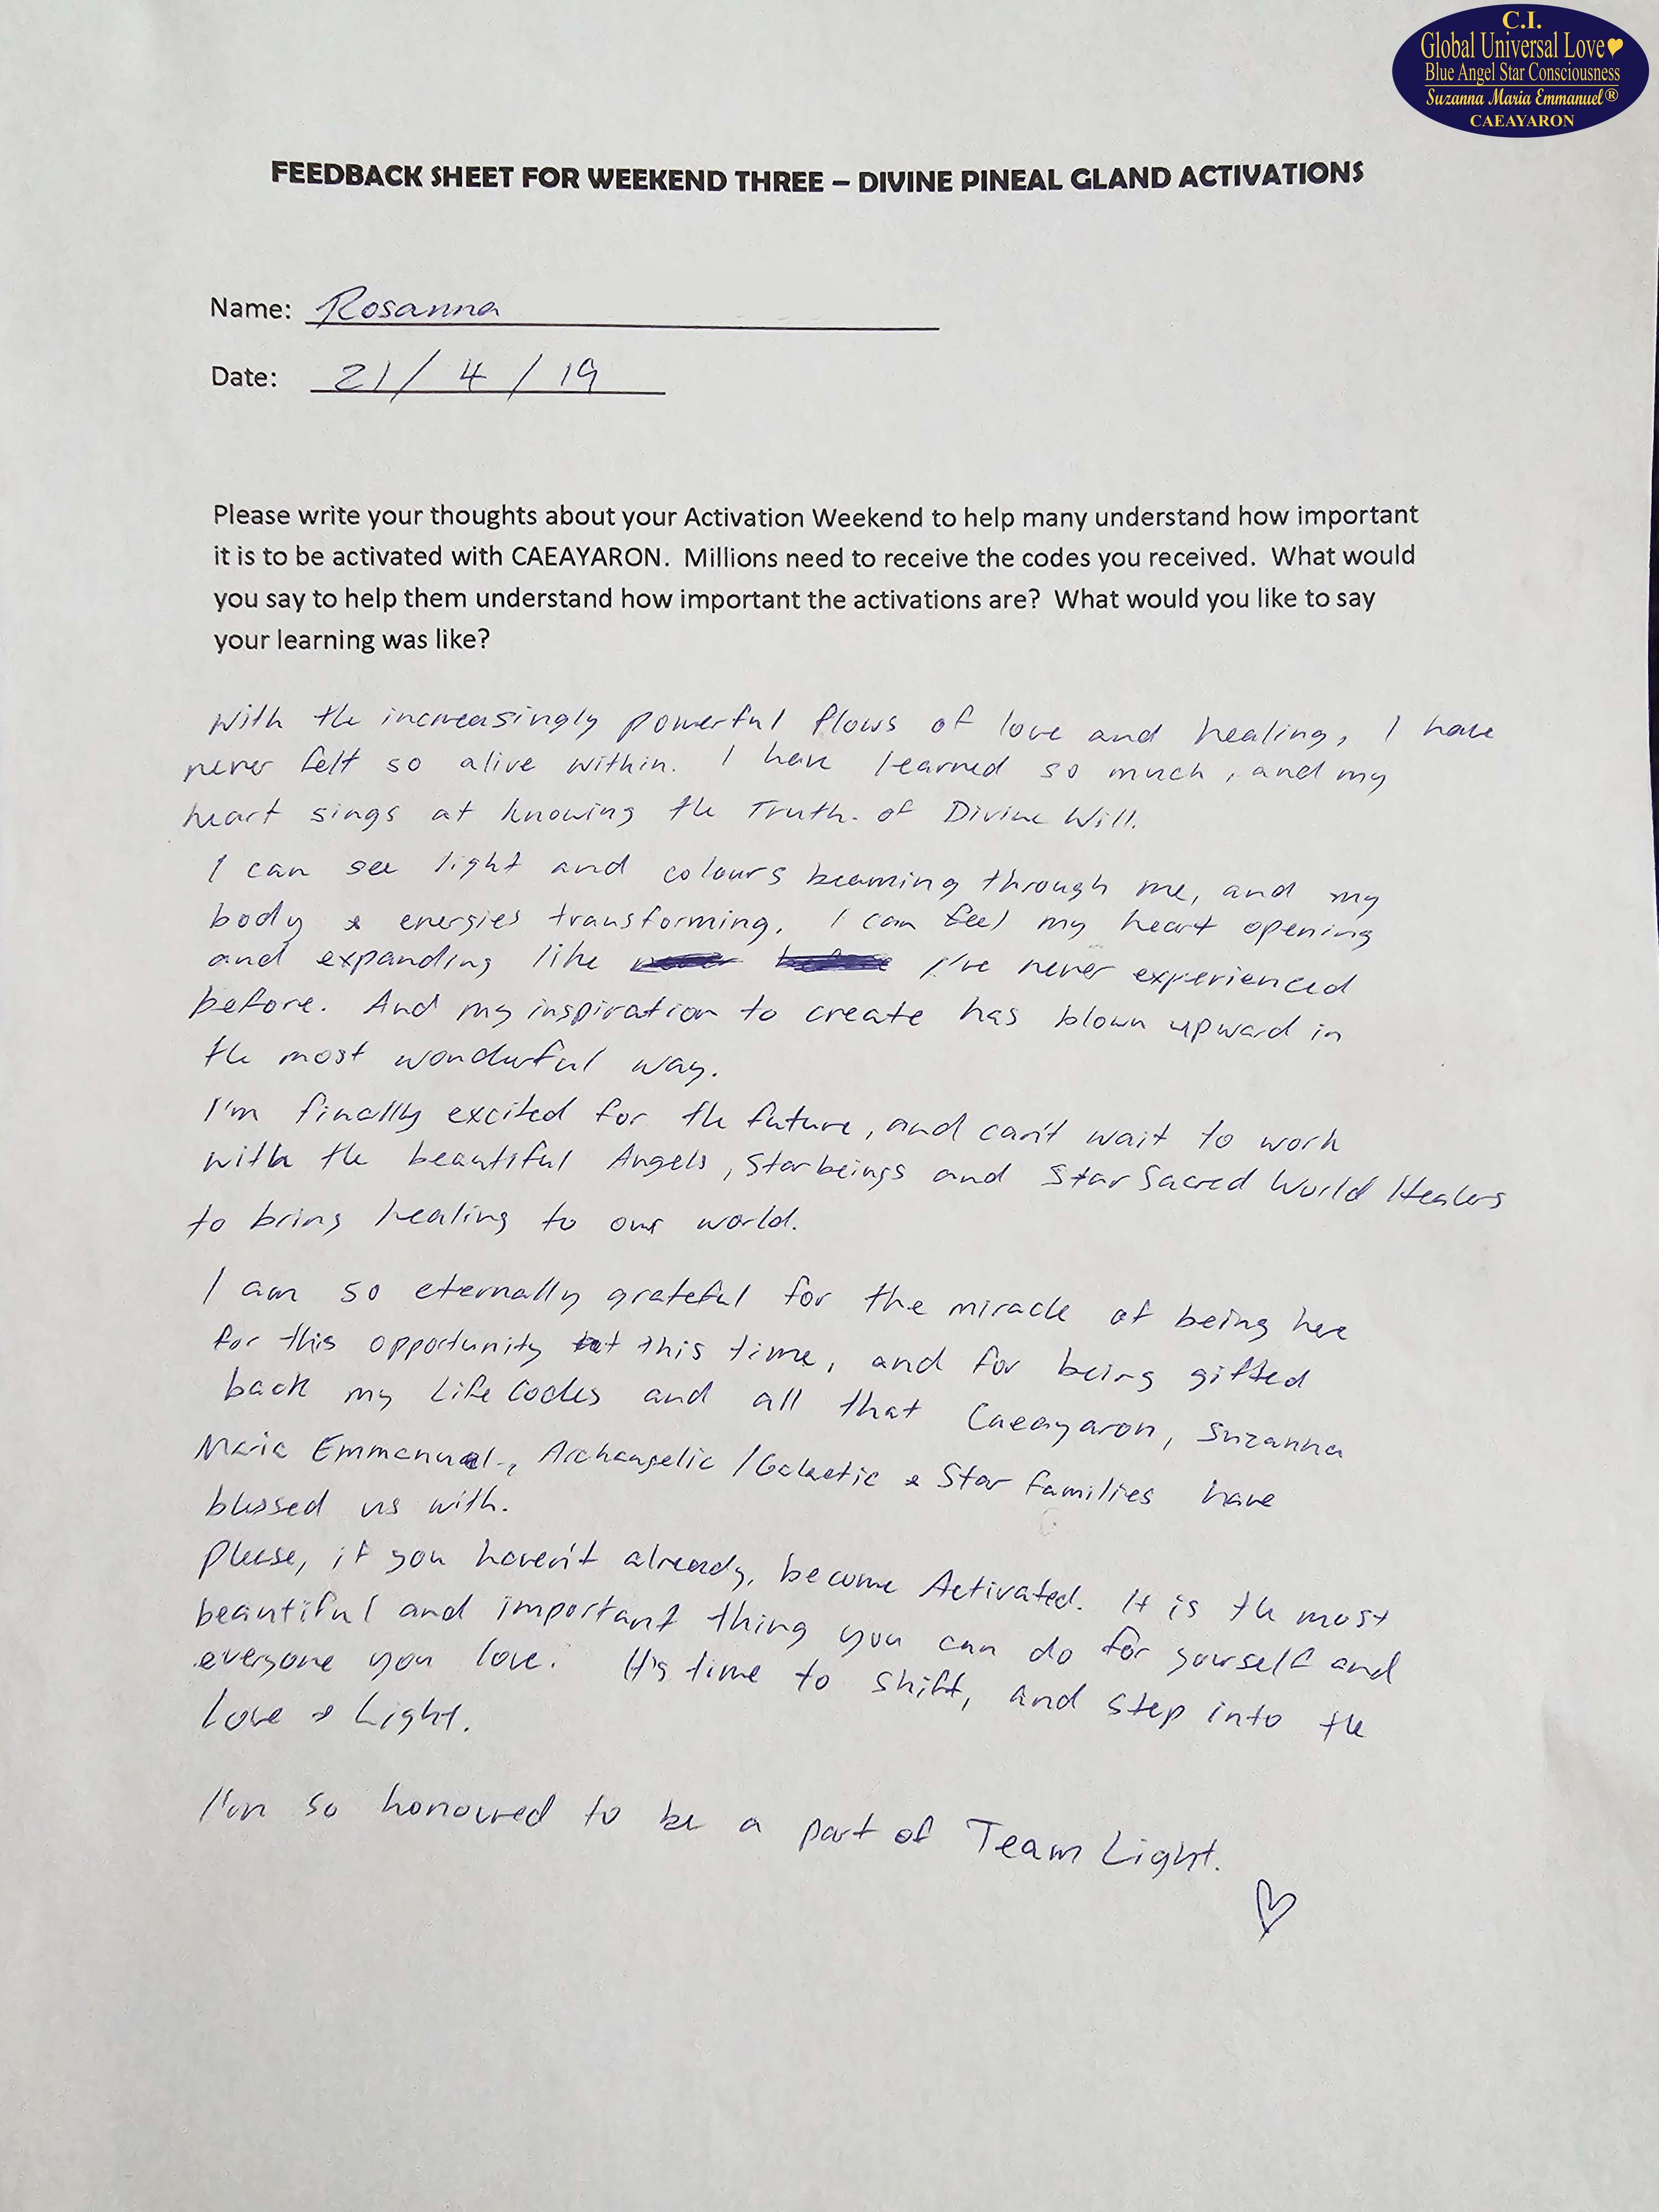 C.I.
Global Universal Love
Blue Angel Star Consciousness
Suzanna Maria Emmanuel®
CAEAYARON
FEEDBACK SHEET FOR WEEKEND THREE – DIVINE PINEAL GLAND ACTIVATIONS
Name: Rosanna
Date: 21/4/19
Please write your thoughts about your Activation Weekend to help many understand how important
it is to be activated with CAEAYARON. Millions need to receive the codes you received. What would
you say to help them understand how important the activations are? What would you like to say
your learning was like?
With the increasingly powerful flows of love and healing, I have
never felt so alive within. I have learned so much, and my
heart sings at knowing the Truth of Divine Will.
I can see light and colours beaming through me, and my
body & energies transforming. I can feel my heart opening
and expanding like I've never experienced
before. And my inspiration to create has blown upward in
the most wonderful way.
I'm finally excited for the future, and can't wait to work
with the beautiful Angels, Starbeings and Star Sacred World Healers
to bring healing to our world.
I am so eternally grateful for the miracle of being here
for this opportunity at this time, and for being gifted
back my Life Codes and all that Caeayaron, Suzanna
Maria Emmanuel, Archangelic/Galactic & Star families have
blessed us with.
Please, if you haven't already, become Activated. It is the most
beautiful and important thing you can do for yourself and
everyone you love. It's time to shift, and step into the
Love & Light.
I'm so honoured to be a part of Team Light.